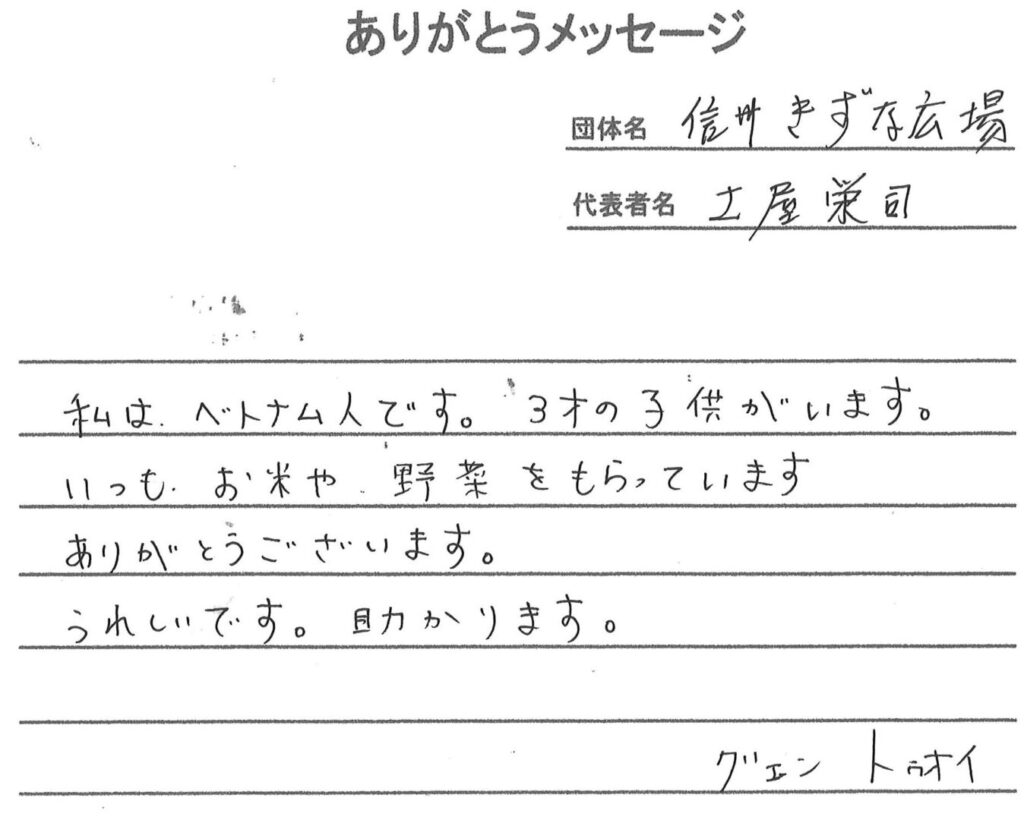 ありがとうメッセージ
団体名 信州きずな広場
代表者名 土屋栄司
私は ベトナム人です。 3才の子供がいます。
いつも お米や 野菜をもらっています
ありがとうございます。
うれしいです。 助かります。
グエン トゥオイ